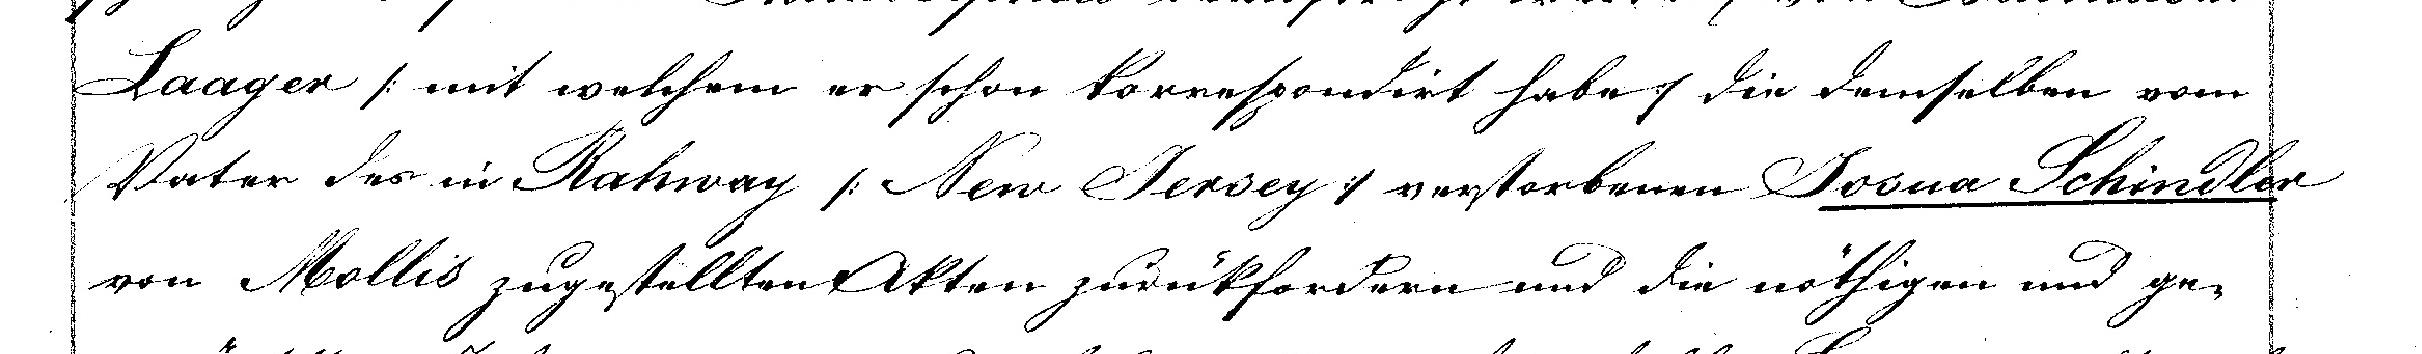 Laager /: mit welchem er schon korrespondirt habe :/ die demselben vom
Vater des in Rahway /: New Jersey :/ verstorbenen Josua Schindler
von Mollis zugestellten Akten zurükfordern und die nöthigen und ge-